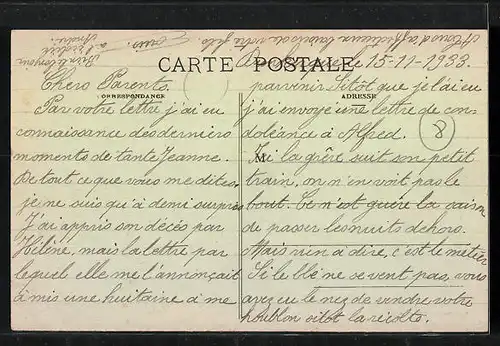 CARTE POSTALE
CORRESPONDANCE
ADRESSE
le 15-11-1933
Chers Parents.
Par votre lettre j'ai eu
connaissance des derniers
moments de tante Jeanne.
De tout ce que vous me dites,
je ne suis qu'à demi surpris
J'ai appris son décès par
Hélène, mais la lettre par
lequel elle me l'annonçait
a mis une huitaine à me
parvenir. Sitôt que je l'ai eu
j'ai envoyé une lettre de con-
doléance à Alfred.
8
M
Ici la grève suit son petit
train, on n'en voit pas le
bout. Ce n'est guère la saison
de passer les nuits dehors.
Mais rien à dire, c'est le métier
Si le blé ne se vent pas, vous
avez eu le nez de vendre votre
houblon sitôt la récolte.
A tous d'affectueux baisers de votre fils